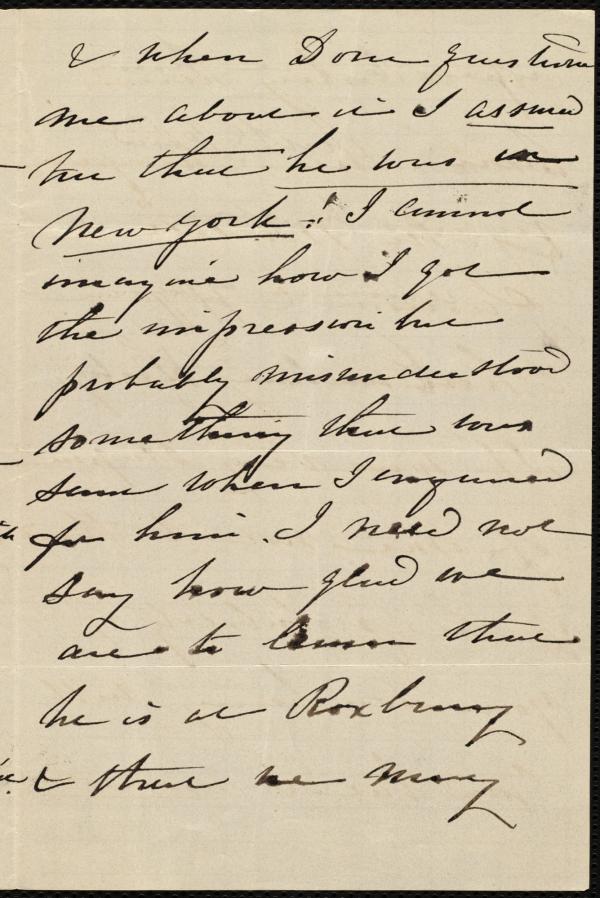 & when Dora questioned
me about it I assured
her that he was in
New York! I cannot
imagine how I got
the impression but
probably misunderstood
something that was
said when I enquired
for him. I need not
say how glad we
are to learn that
he is at Roxbury
& that we may